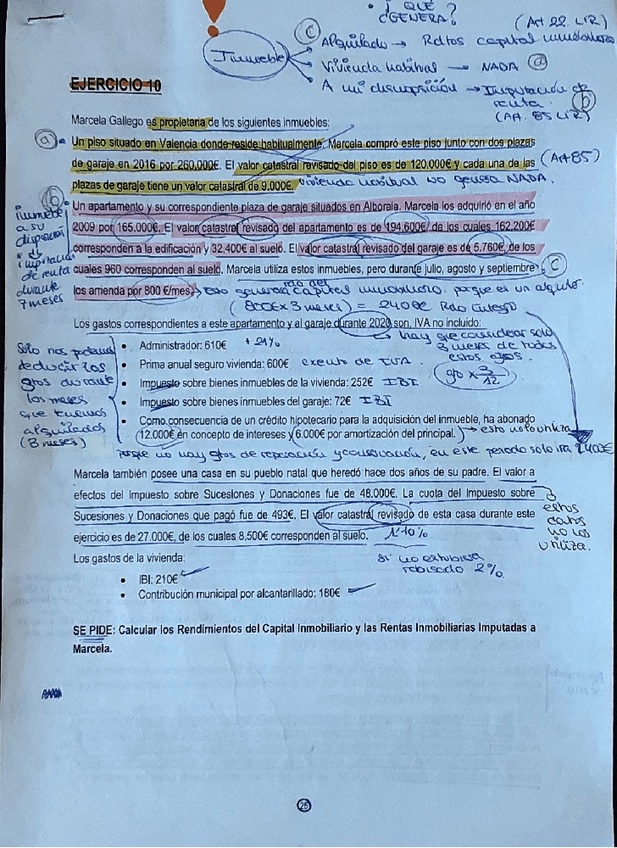 ¿QUÉ
GENERA?
(Art 22 LIR)
Inmueble
c Alquilado → Rdtos capital inmobiliario
Vivienda habitual → NADA a
A mi disposición → Imputación de
renta. b
(Art. 85 LIR)
EJERCICIO 10
Marcela Gallego es propietaria de los siguientes inmuebles:
a Un piso situado en Valencia donde reside habitualmente. Marcela compró este piso junto con dos plazas
de garaje en 2016 por 260.000€. El valor catastral revisado del piso es de 120.000€ y cada una de las (Art 85)
plazas de garaje tiene un valor catastral de 9.000€. vivienda habitual no genera NADA.
b
inmueble
a su
disposición
imputación
de renta
durante
7 meses
Un apartamento y su correspondiente plaza de garaje situados en Alboraia. Marcela los adquirió en el año
2009 por 165.000€. El valor catastral revisado del apartamento es de 194.600€ de los cuales 162.200€
corresponden a la edificación y 32.400€ al suelo. El valor catastral revisado del garaje es de 5.760€, de los
cuales 960 corresponden al suelo. Marcela utiliza estos inmuebles, pero durante julio, agosto y septiembre c
los arrienda por 800 €/mes. Esto genera rdto del capital inmobiliario. porque es un alquiler.
(800€ x 3 meses) = 2400€ Rdto íntegro
Los gastos correspondientes a este apartamento y al garaje durante 2020 son, IVA no incluido:
→ hay que considerar solo
3 meses de todos
estos gtos.
gto x 3/12
Solo nos podemos
deducir los
gtos durante
los meses
que tenemos
alquilados
(3 meses)
• Administrador: 610€ + 21%
• Prima anual seguro vivienda: 600€ exento de IVA
• Impuesto sobre bienes inmuebles de la vivienda: 252€ IBI
• Impuesto sobre bienes inmuebles del garaje: 72€ IBI
• Como consecuencia de un crédito hipotecario para la adquisición del inmueble, ha abonado
12.000€ en concepto de intereses y 6.000€ por amortización del principal. → esto no lo utiliza
porque no hay gtos de reparación y conservación, en este periodo solo 2.400€
Marcela también posee una casa en su pueblo natal que heredó hace dos años de su padre. El valor a
efectos del Impuesto sobre Sucesiones y Donaciones fue de 48.000€. La cuota del Impuesto sobre
Sucesiones y Donaciones que pagó fue de 493€. El valor catastral revisado de esta casa durante este
ejercicio es de 27.000€, de los cuales 8.500€ corresponden al suelo. 1'10%
estos
datos
no los
utiliza.
si no estuviera
revisado 2%
Los gastos de la vivienda:
• IBI: 210€
• Contribución municipal por alcantarillado: 180€
SE PIDE: Calcular los Rendimientos del Capital Inmobiliario y las Rentas Inmobiliarias Imputadas a
Marcela.
25